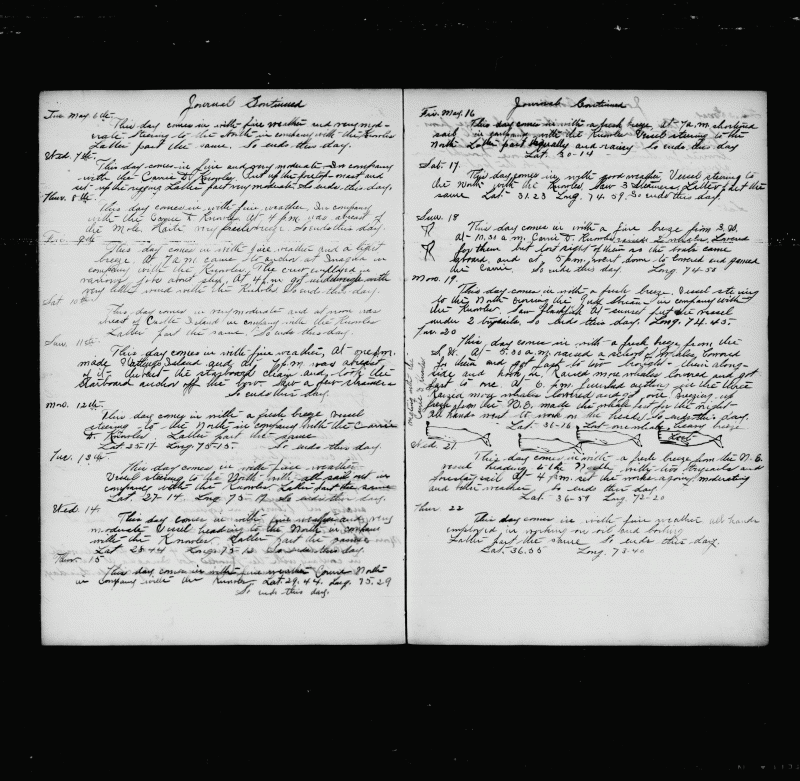 Journal Continued
Tue. May 6th
This day comes in with fine weather and very mod-
erate steering to the North in company with the Knowles
Latter part the same. So ends this day.
Wed. 7th
This day comes in fine and very moderate In company
with the Carrie D. Knowles. Put up the foretop-mast and
set up the rigging Latter part very moderate So ends this day.
Thur. 8th
This day comes in with fine weather. In company
with the Carrie D Knowles At 4 P.M. was abreast of
the Mole, Haiti very fresh breeze. So ends this day.
Fri. 9th
This day comes in with fine weather and a light
breeze At 7 A.M. came to anchor at Inagua in
company with the Knowles. The crew employed in
various jobs about ship. At 4 P.M. got underweigh with
very light wind with the Knowles So ends this day.
Sat 10th
This day comes in very moderate and at noon was
abreast of Castle Island in company with the Knowles
Latter part the same. So ends this day.
Sun. 11th
This day comes in with fine weather, At one P.M.
made Island and at 6 P.M. was abreast
of it. the starboard chain and took the
starboard anchor off the bow. Saw a few steamers
So ends this day.
Mon. 12th
This day comes in with a fresh breeze Vessel
steering to the North in company with the Carrie
D. Knowles. Latter part the same
Lat 25-17 Long. 75-15. So ends this day.
Tue. 13th
This day comes in with fine weather
Vessel steering to the North with all sail out in
company with the Knowles Latter part the same
Lat. 27-14. Long 75-17 So ends this day.
Wed. 14.
This day comes in with fine weather and very
moderate Vessel heading to the North in company
with the Knowles. Latter part the same
Lat 28-44 Long. 75-13 So ends this day.
Thur. 15
This day comes in with fine weather bound North
in company with the Knowles. Lat. 29.44. Long. 75.29
So ends this day.
Journal Continued
Fri. May. 16
This day comes in with a fresh breeze. At 7 a.m. shortened
sail in company with the Knowles Vessel steering to the
North Latter part squally and rainy So ends this day
Lat. 30-14
Sat. 17.
This day comes in with good weather Vessel steering to
the North with the Knowles. Saw 3 steamers. Latter part the
same Lat- 31.23 Long. 74.59. So ends this day.
Sun. 18
This day comes in with a fine breeze from S.W.
At 10.30 a.m. Carrie D. Knowles raised a whale. Lowered
for them but lost sight of them as the boats came
aboard, and at 5 P.M. went down to leeward and gammed
the Carrie. So ends this day. Long. 74-58
Mon. 19.
This day comes in with a fresh breeze, Vessel steering
to the North crossing the Gulf Stream in company with
the Knowles. Saw blackfish at sunset put the vessel
under 2 topsails. So ends this day. Long. 74.45
Tue. 20
This day comes in with a fresh breeze from the
S.W. At 5.30 a.m. raised a school of whales, lowered
for them and got fast to two brought them along-
side and hooked on. Raised more whales lowered and got
fast to one. At 6 P.M. finished cutting in the three
Raised more whales lowered and got one breezing up
fresh from the N.E. made the whale fast for the night
all hands went to work on the heads. So ends this day.
Lat- 36-16 Lost one whale heavy breeze
Lost
Wed. 21
This day comes in with a fresh breeze from the N.E.
vessel heading to the North with two trysails and
foresail sail At 4 P.M. set the mizen again moderating
and better weather. So ends this day.
Lat- 36-59 Long 72-20
Thur. 22
This day comes in with fine weather all hands
employed in working on oil and boiling
Latter part the same So ends this day.
Lat. 36.55 Long. 73.40